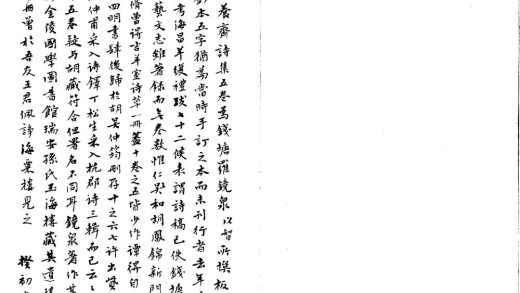 養齋詩集五卷為錢塘羅鏡泉以智所撰板
本五字猶為當時手訂之本而未刊行者去年
考海昌羊復禮跋七十二候表謂詩稿已佚錢塘
藝文志雖著錄而無卷數惟仁和胡鳳錦新門
脩曾得吉羊室詩草一冊蓋十卷之五皆少作譚得自
四明書肆後歸於胡吳仲筠刪存十之六七許出貲
仲甫采入詩鐸丁松生采入杭郡詩三輯而已云
五卷疑與胡藏符合但署名不同耳鏡泉著作甚
金陵國學圖書館瑞安孫氏玉海樓藏其遺
冊曾於吾友王君佩諍海粟樓見之 揆初